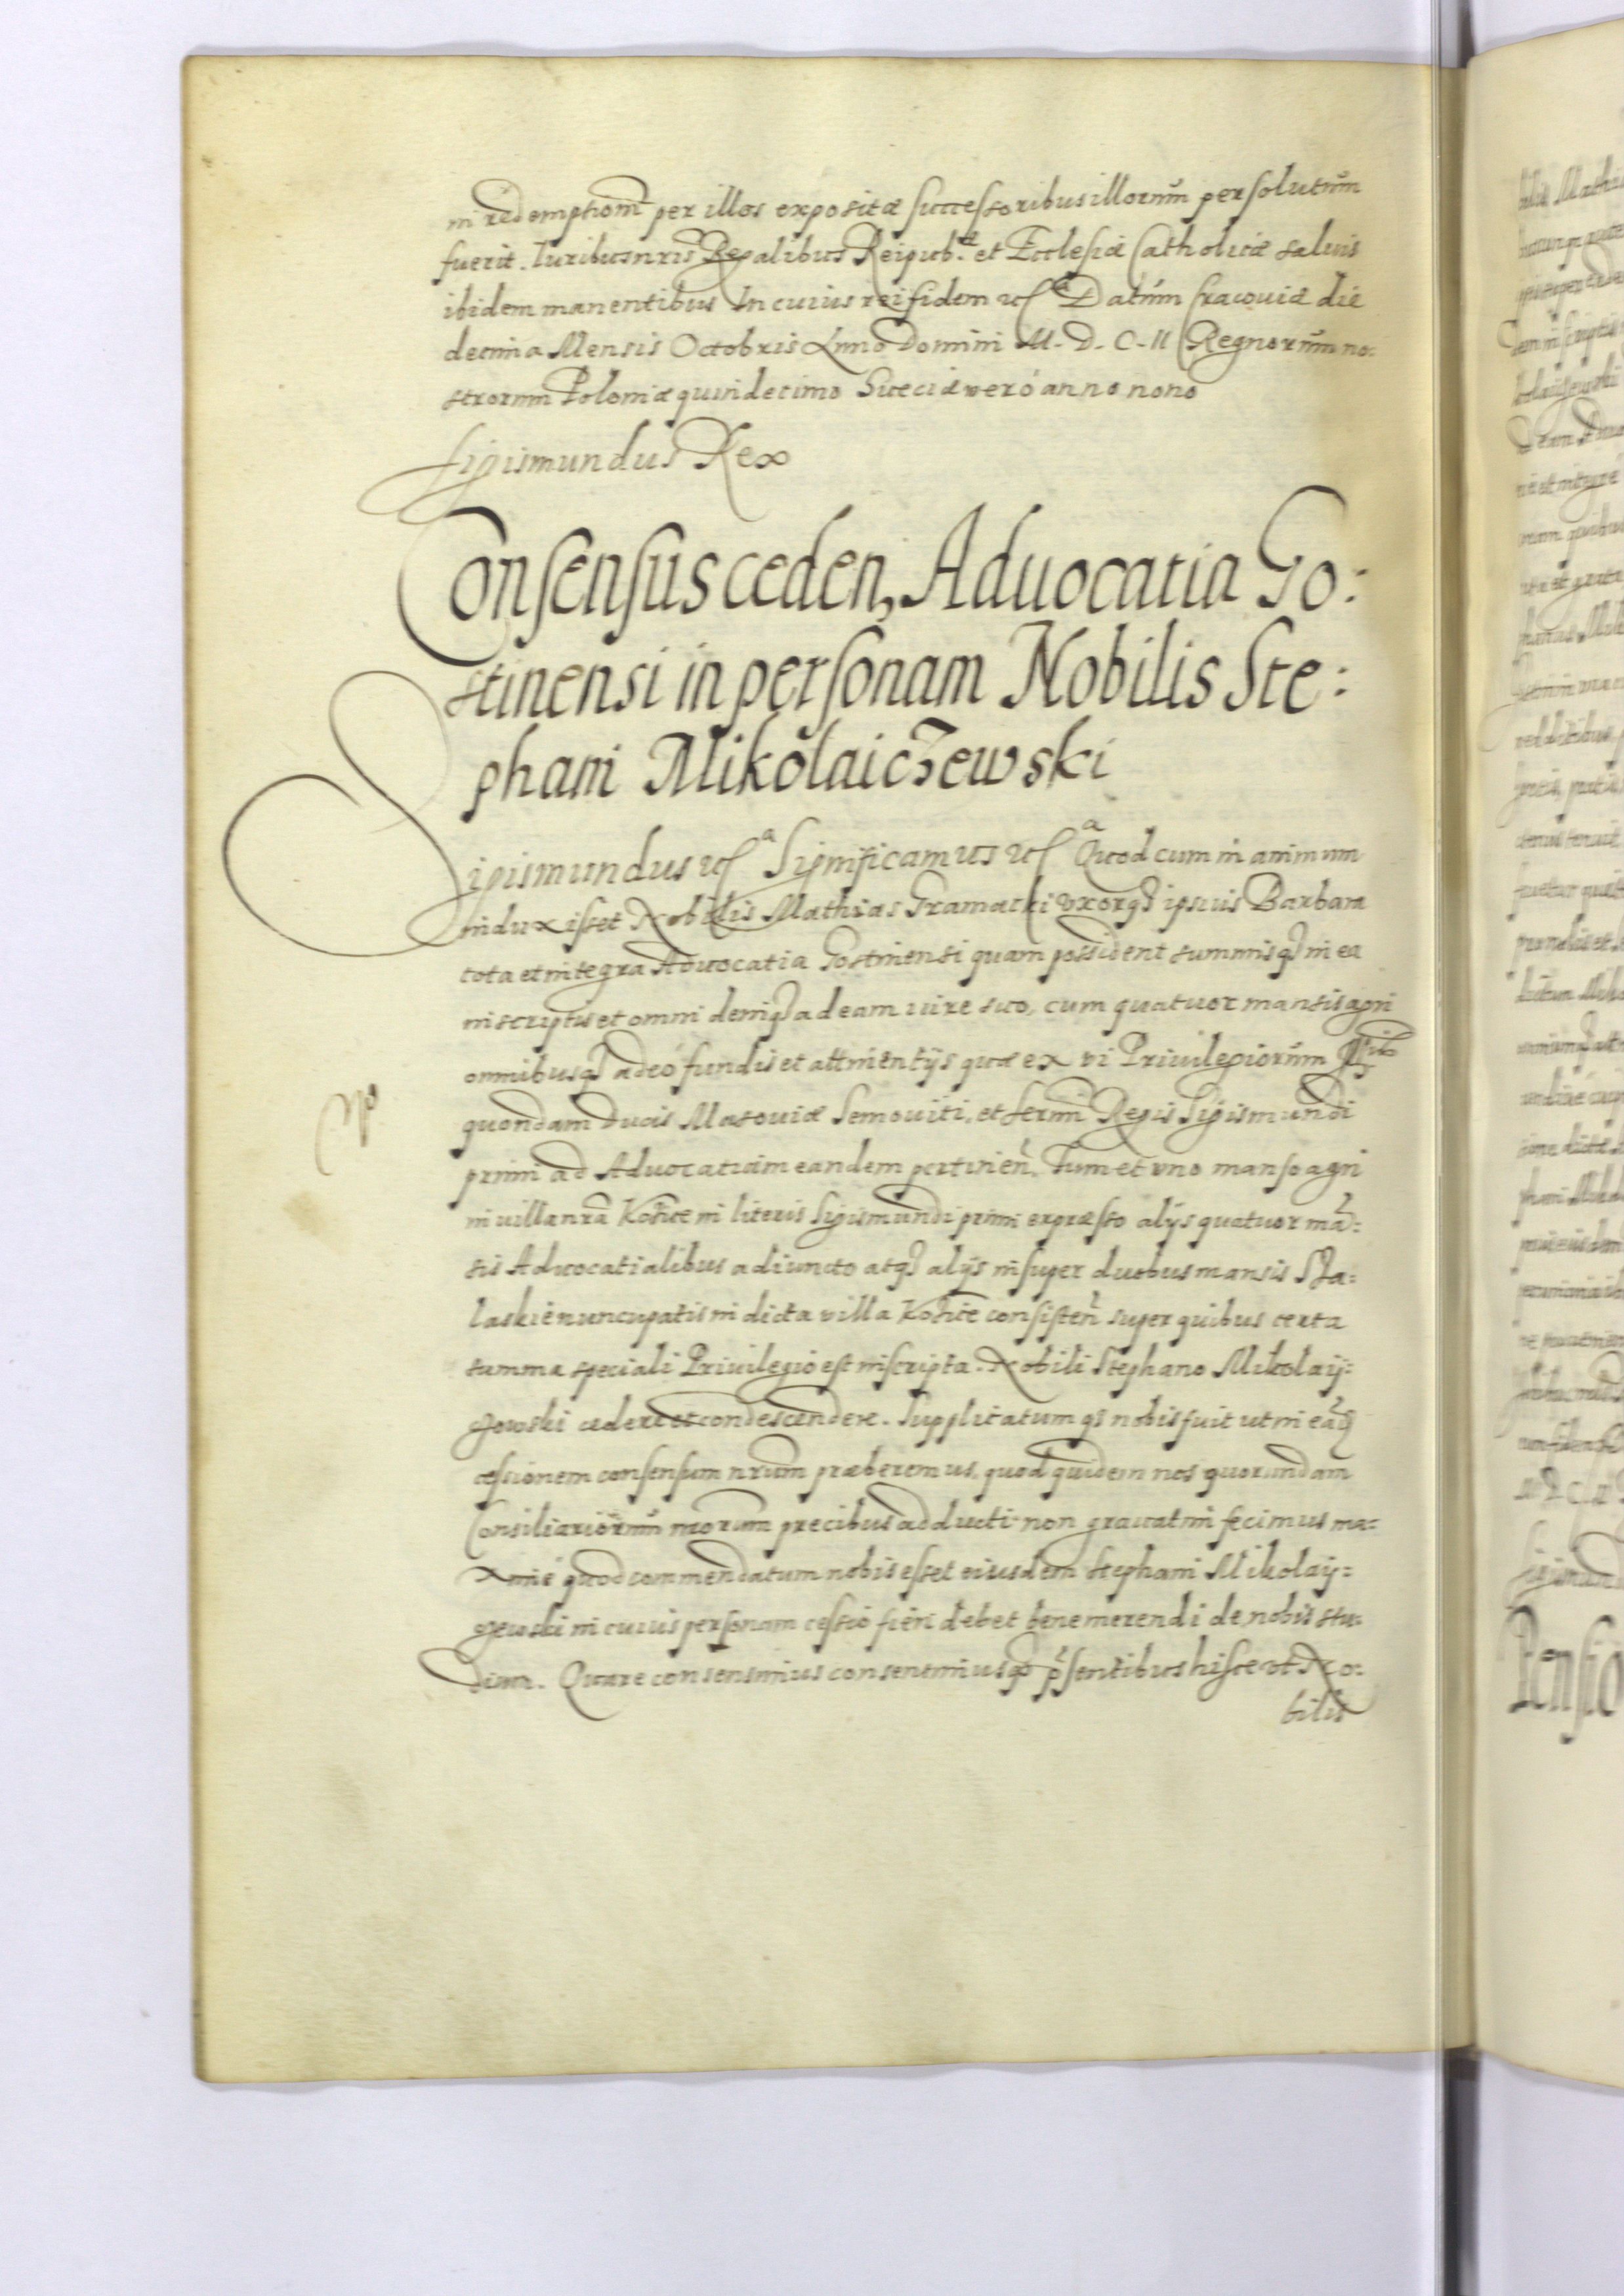 in redemptionē per illos expositæ successoribus illorum persolutum
fuerit. Iuribus nr̄is Regalibus Reipub.cæ et Ecclesiæ Catholicæ salvis
ibidem manentibus In cuius rei fidem etc̄ Datum Cracoviæ die
decima Mensis Octobris Anno Domini M. D. C. II Regnorum no:
strorum Poloniæ quindecimo Sueciæ verò anno nono
Sigismundus Rex
Consensus ceden, Advocatia Go:
stinensi in personam Nobilis Ste:
phani Mikolaiczewski
Sigismundus etc̄ Significamus etc̄ Quod cum in animum
induxisset Nobilis Mathias Gramacki uxorq; ipsius Barbara
tota et integra Advocatia Gostinensi quam possident summisq; in ea
inscriptis et omni deniq; ad eam iure suo, cum quatuor mansis agri
omnibusq; adeò fundis et attinentijs quæ ex vi Privilegiorum
quondam Ducis Masoviæ Semoviti, et sermi Regis Sigismundi
primi ad Advocatiam eandem pertinen̄. Tum et uno manso agri
in villa nrā Kotite in literis Sigismundi primi expræsso alijs quatuor mā:
sis Advocatialibus adiuncto atq; alijs insuper duobus mansis Sta:
laskie nuncupatis in dicta villa Kotite consisten̄ super quibus certa
summa speciali Privilegio est inscripta. Nobili Stephano Mikolaij:
gowski cedere et condescendere. Supplicatum qs nobis fuit ut in eāq;
cessionem consensum nrūm præberemus, quod quidem nos quorundam
Consiliariorum nrorum precibus adducti non gravatim fecimus ma:
ximè quod commendatum nobis esset eiusdem Stephani Mikolaij:
gewski in cuius personam cessio fieri debet bene merendi de nobis stu:
dium. Quare consensimus consentimusq; p̄sentibus hisce ut No:
bilis